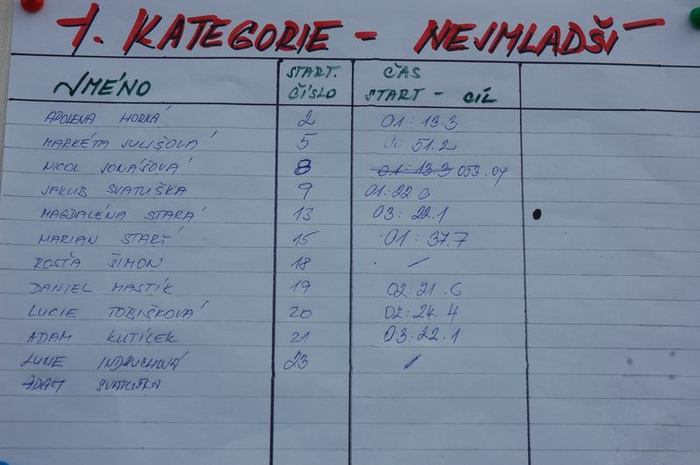 1. KATEGORIE - NEJMLADŠÍ
JMÉNO START. ČÍSLO ČAS START - CÍL
APOLENA HORKÁ 2 01:13.3
MARKÉTA JULIŠOVÁ 5 51.2
NICOL JONÁŠOVÁ 8 01:13.3 053.04
JAKUB SVATUŠKA 9 01:22.0
MAGDALÉNA STARÁ 13 03:22.1
MARIAN STARÝ 15 01:37.7
ROSŤA ŠIMON 18 /
DANIEL MASTÍK 19 02:21.6
LUCIE TOBIŠKOVÁ 20 02:24.4
ADAM KUTÍLEK 21 03:22.1
23 /
ADAM SVATUŠKA